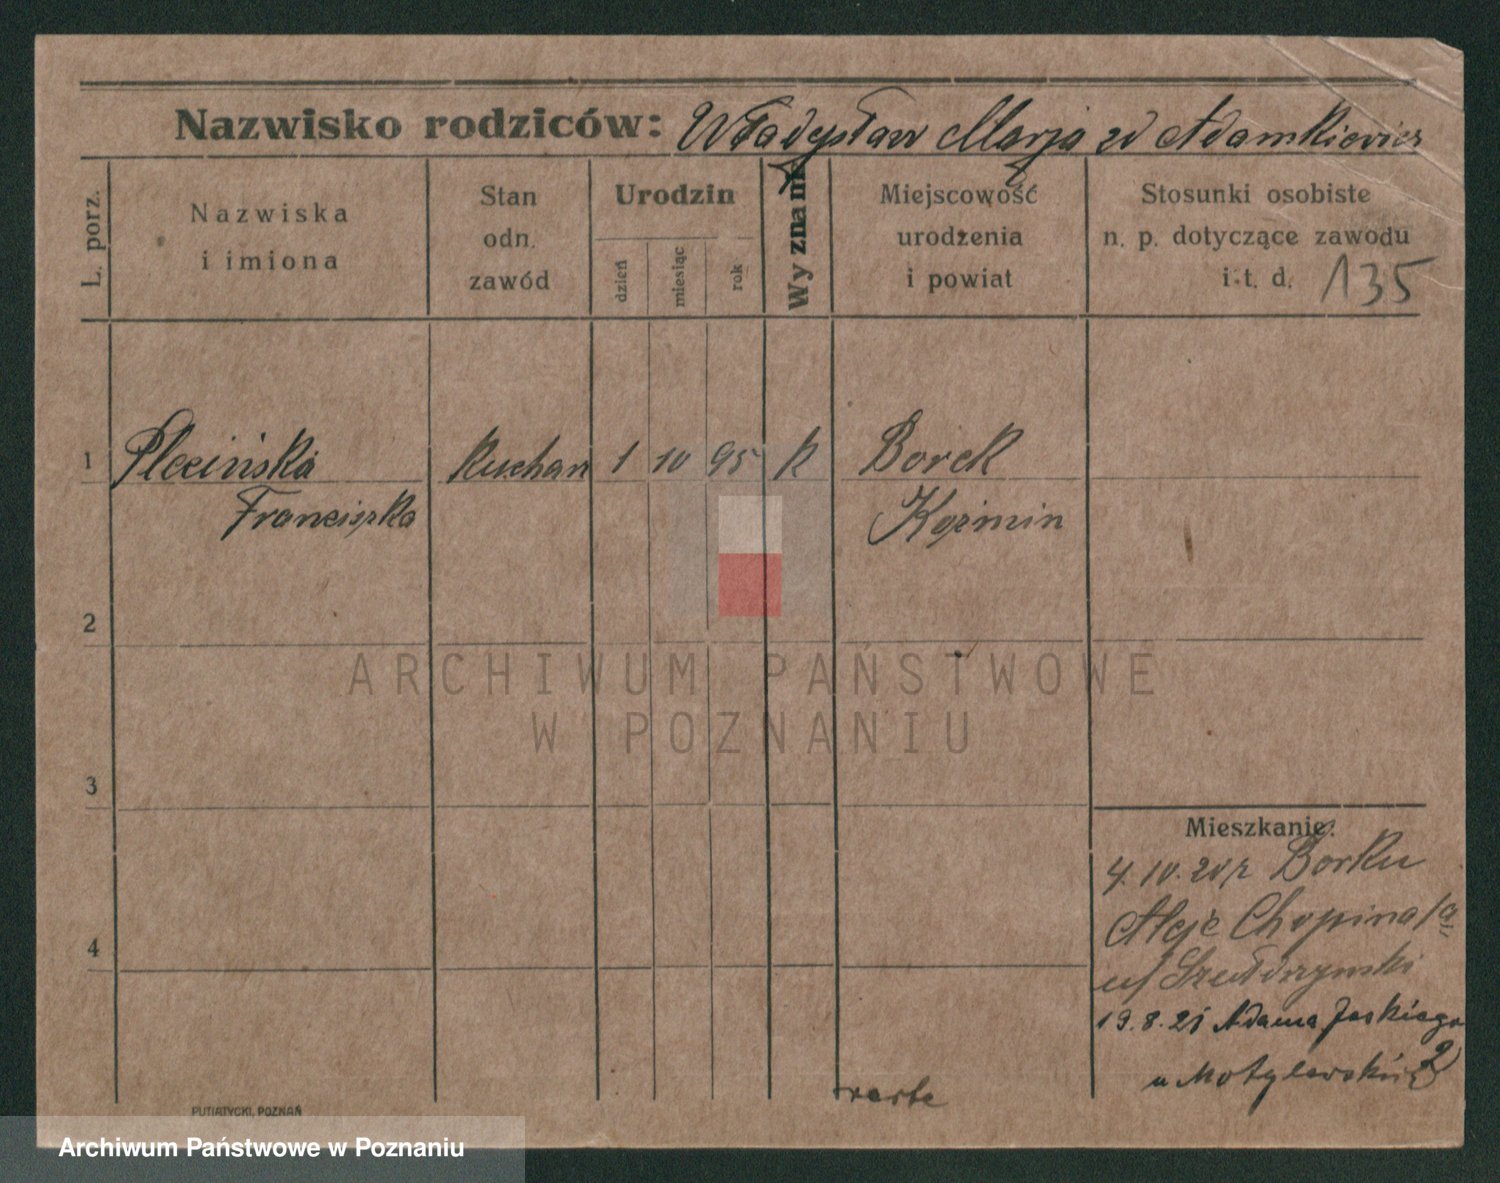 Nazwisko rodziców: Władysław Marja zd Adamkiewicz
L. porz.
Nazwiska
i imiona
Stan
odn.
zawód
Urodzin
dzień
miesiąc
rok
Wyznanie
Miejscowość
urodzenia
i powiat
Stosunki osobiste
n. p. dotyczące zawodu
i t. d. 135
1 Plecińska Kuchan 1 10 95 k Borek
Franciszka Koźmin
2
ARCHIWUM PAŃSTWOWE
W POZNANIU
3
Mieszkanie:
4.10.20 z Borku
Aleje Chopina
4
u/ Szułdrzyński
19.8.21 Adama Jaskiego 2
u Motylewskiej
PUTIATYCKI, POZNAŃ
Archiwum Państwowe w Poznaniu